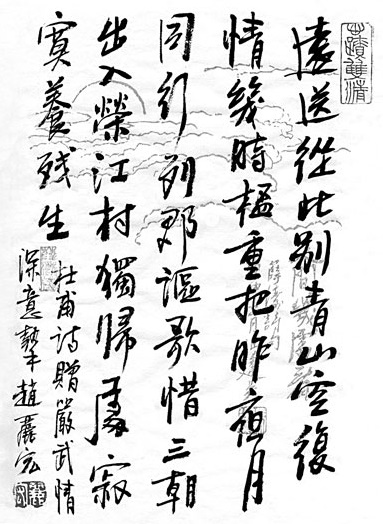 心蹟雙清
遠送從此别青山空復
情幾時桮重把昨夜月
同行列郡謳歌惜三朝
出入榮江村獨歸處寂
寞養残生
杜甫詩贈嚴武情
深意摯 趙麗宏